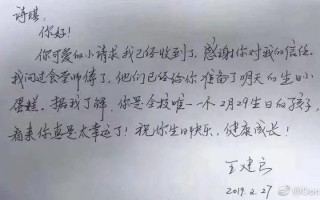 诗琪：
你好！
你可爱的小请求我已经收到了，感谢你对我的信任。
我问过食堂师傅了，他们已经给你准备了明天的生日小
蛋糕。据我了解，你是全校唯一一个2月29生日的孩子，
看来你真是太幸运了！祝你生日快乐，健康成长！
王建
2019.2.27